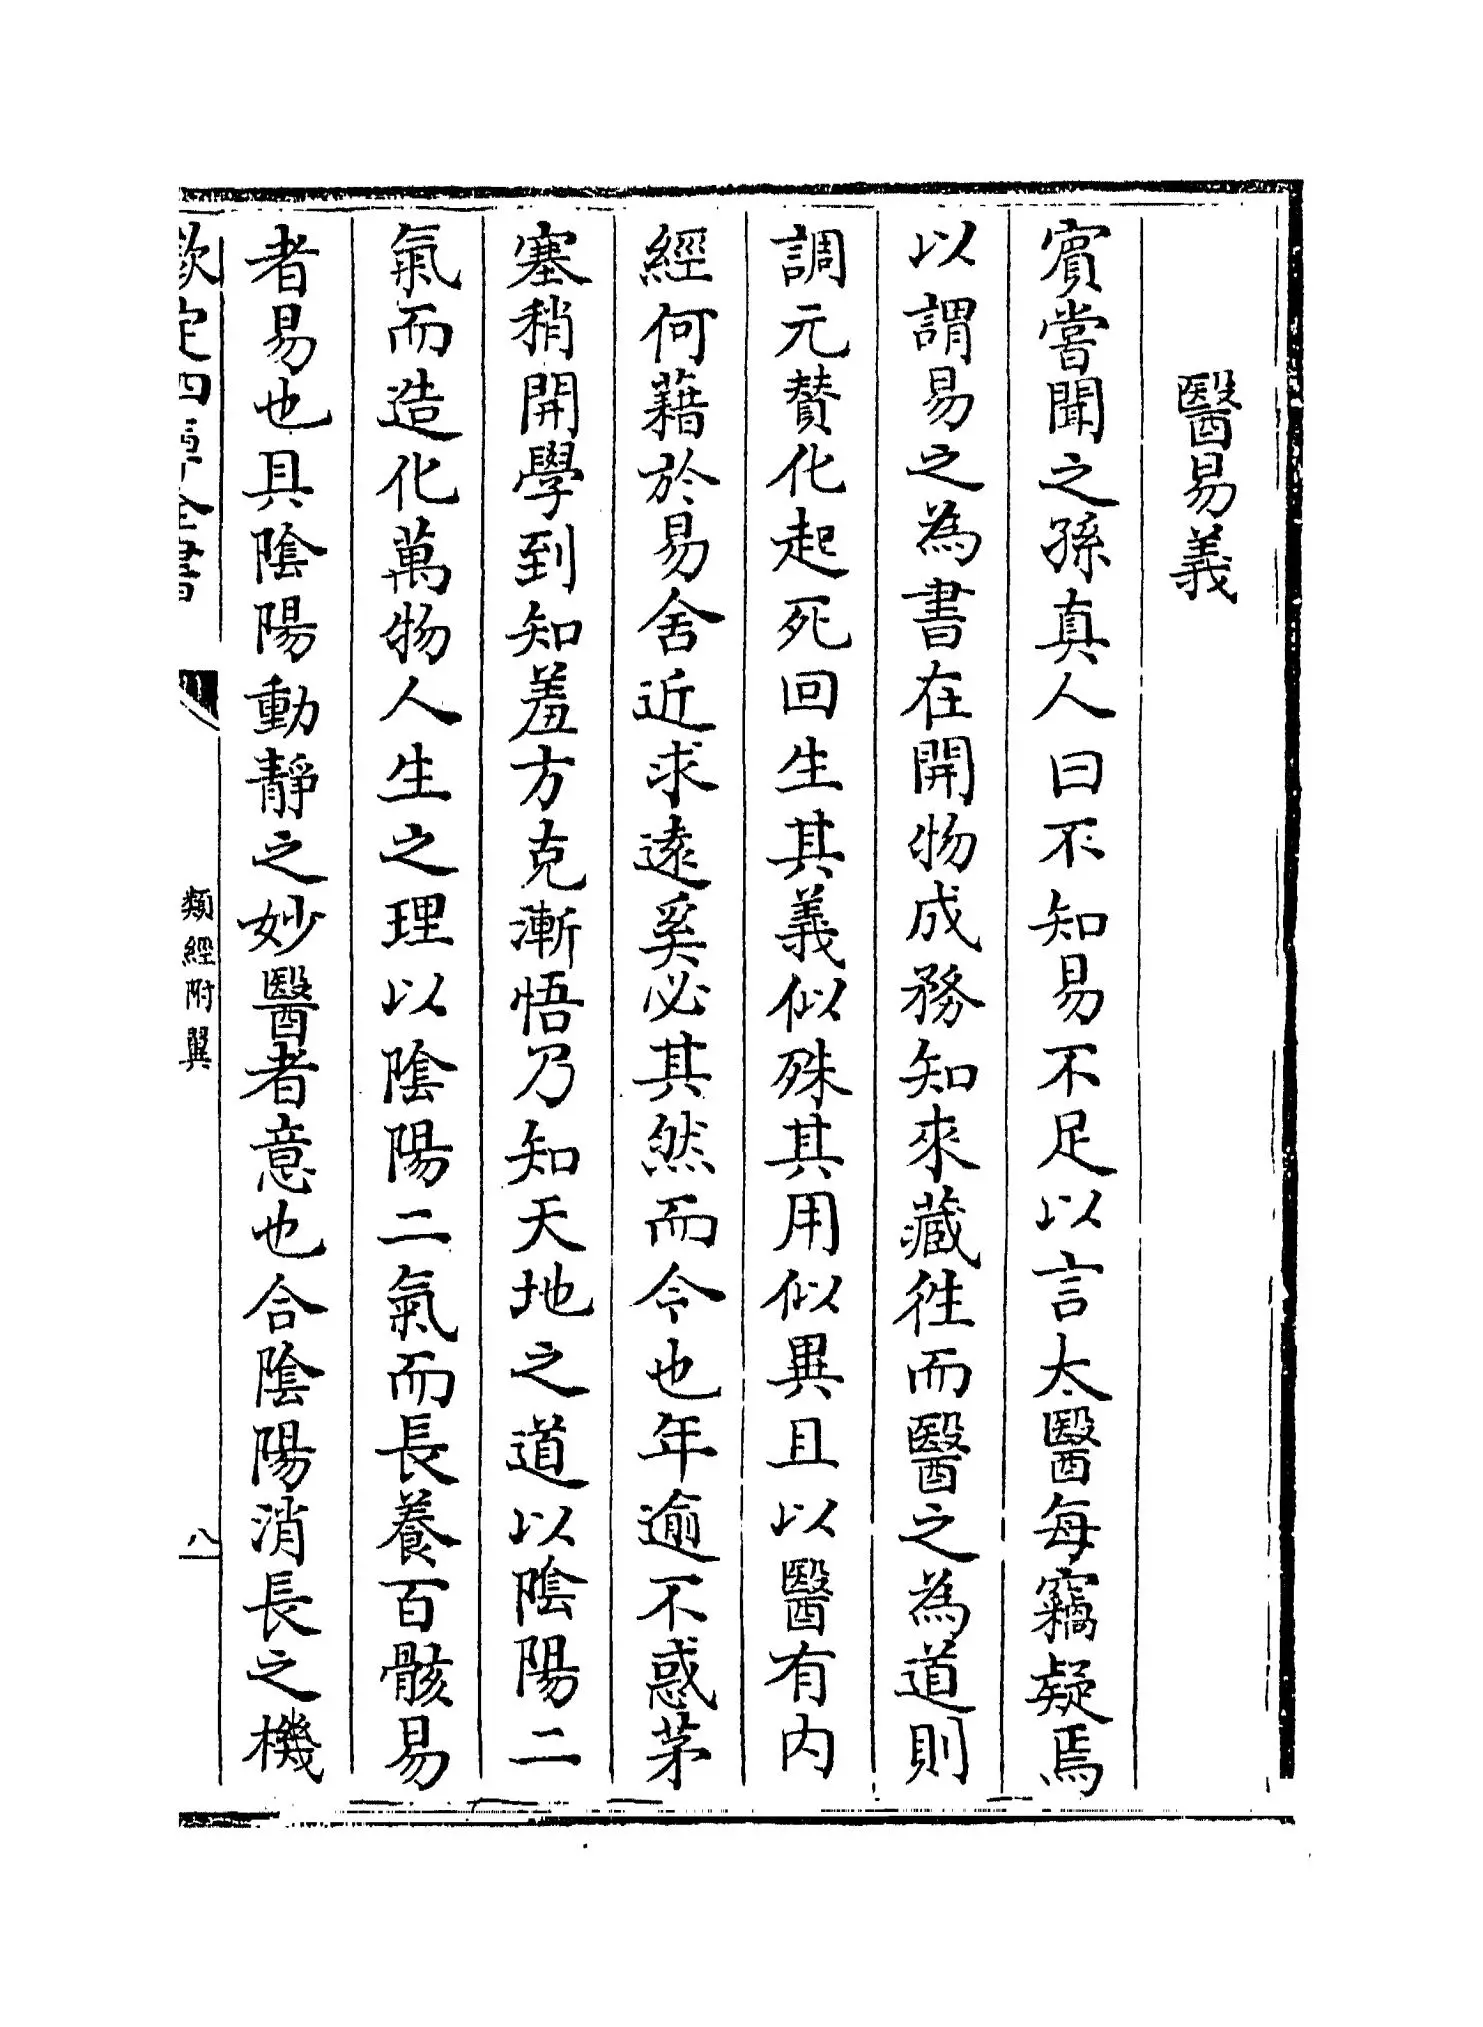 醫易義
賔嘗聞之孫真人曰不知易不足以言太醫每竊疑焉
以謂易之為書在開物成務知來藏徃而醫之為道則
調元贊化起死回生其義似殊其用似異且以醫有内
經何藉於易舍近求逺奚必其然而今也年逾不惑茅
塞稍開學到知羞方克漸悟乃知天地之道以隂陽二
氣而造化萬物人生之理以隂陽二氣而長養百骸易
者易也具隂陽動靜之妙醫者意也合隂陽消長之機
欽定四庫全書
類經附翼
八